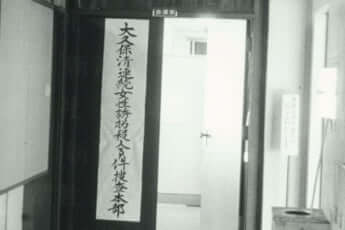 大久保清連続女性誘拐殺人事件捜査本部